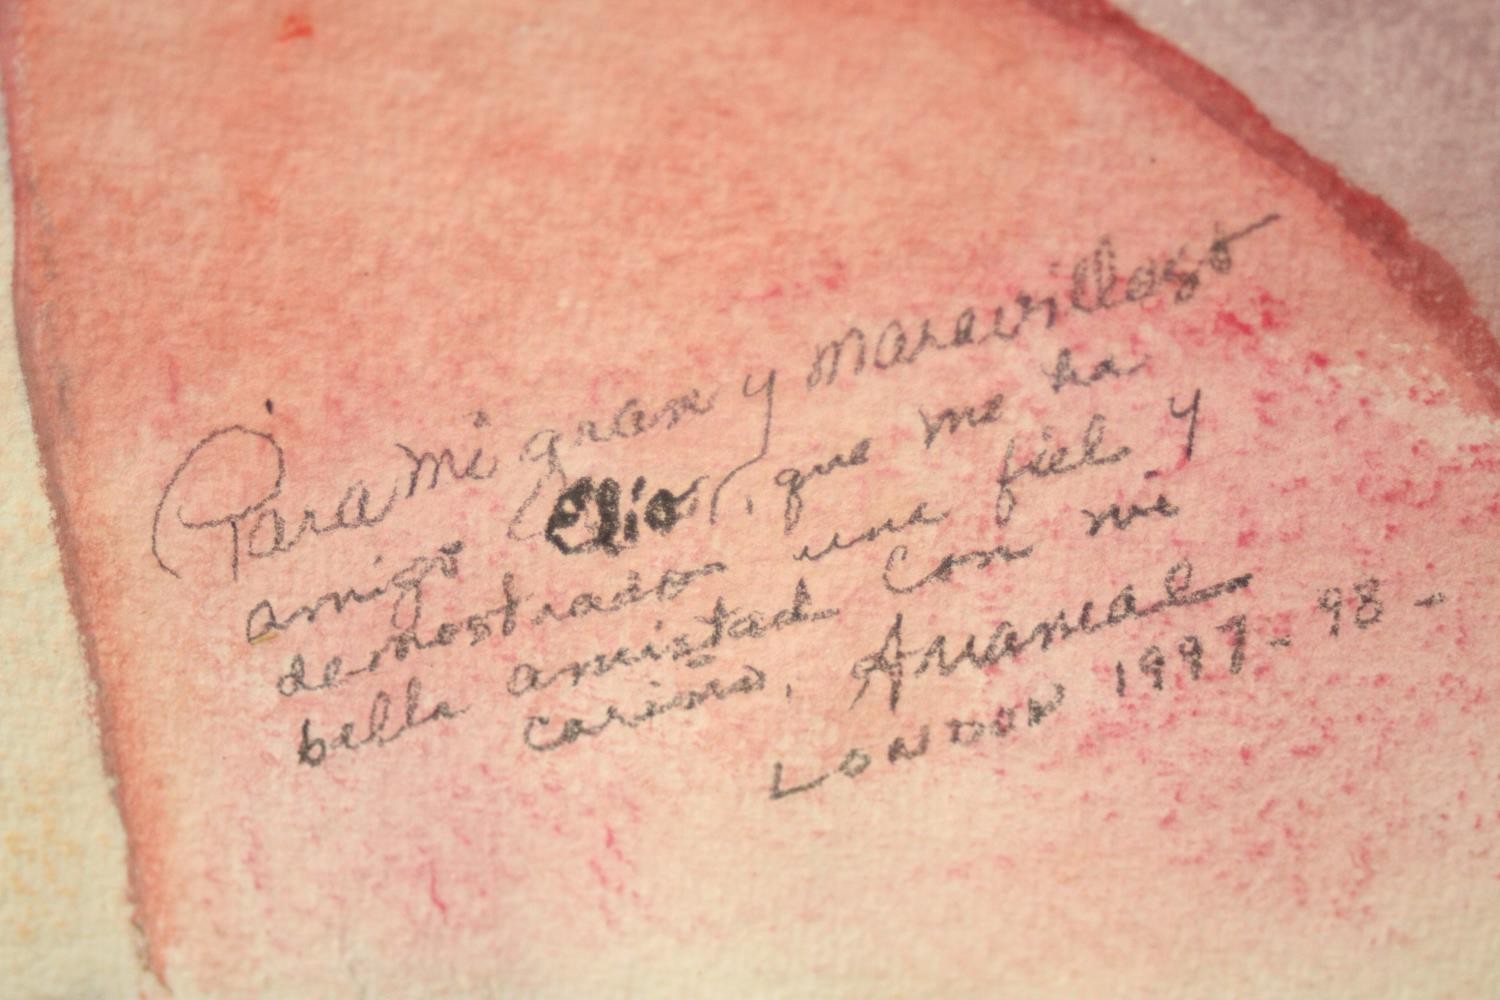 Para mi gran y maravilloso
amigo Elio, que me ha
demostrado una fiel y
bella amistad con mi
cariño,
LONDON 1997-98-